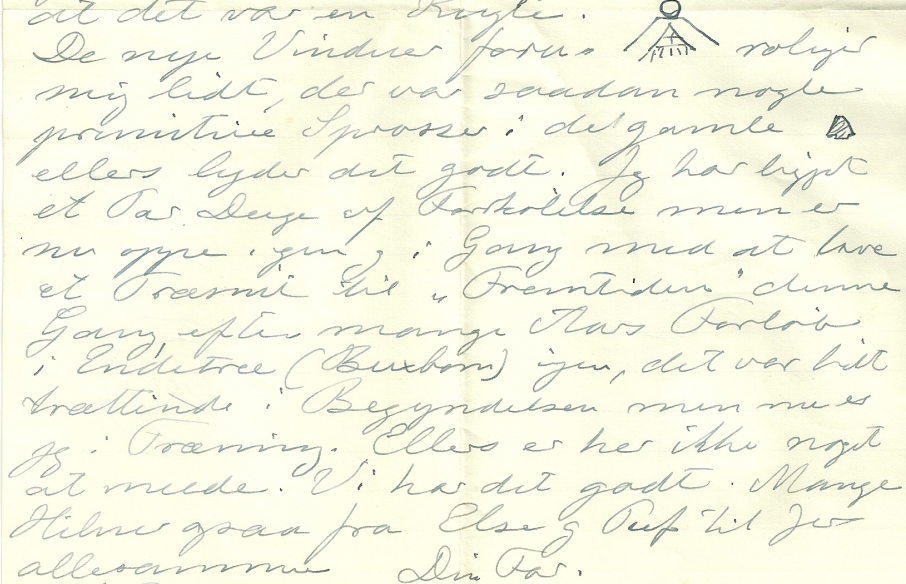 at det var en Kugle.
De nye Vinduer foru- roliger
mig lidt, der var saadan nogle
primitive Sprosser i det gamle
ellers lyder det godt. Jeg har ligget
et Par Dage af Forkølelse men er
nu oppe igen og i Gang med at lave
et Træsnit til "Fremtiden" denne
Gang, efter mange Aars Forløb
i Endetræ (Buxbom) igen, det var lidt
trættende i Begyndelsen men nu er
jeg i Træning. Ellers er her ikke noget
at melde. Vi har det godt. Mange
Hilsner ogsaa fra Else og Puf til Jer
allesammen Din Far.